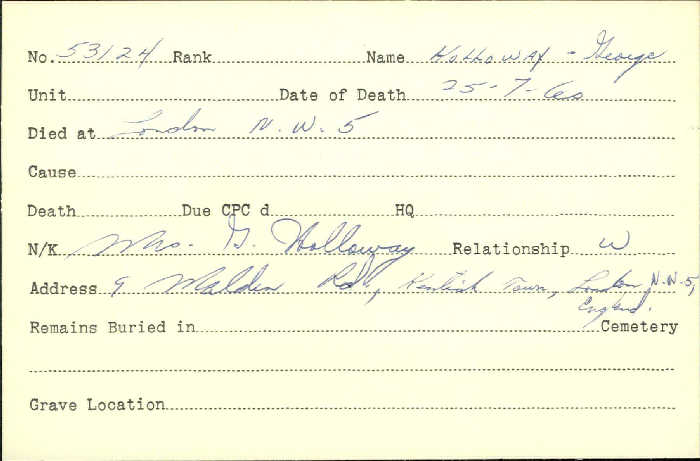 No. 53124 Rank Name Holloway - George
Unit Date of Death 25-7-60
Died at London N.W.5
Cause
Death Due CPC d HQ
N/K Mrs. G. Holloway Relationship W
Address 9 Malden Rd., Kentish Town, London, N.W.5,
England.
Remains Buried in Cemetery
Grave Location